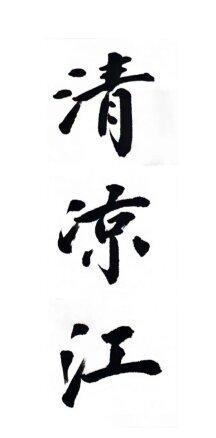 清涼江